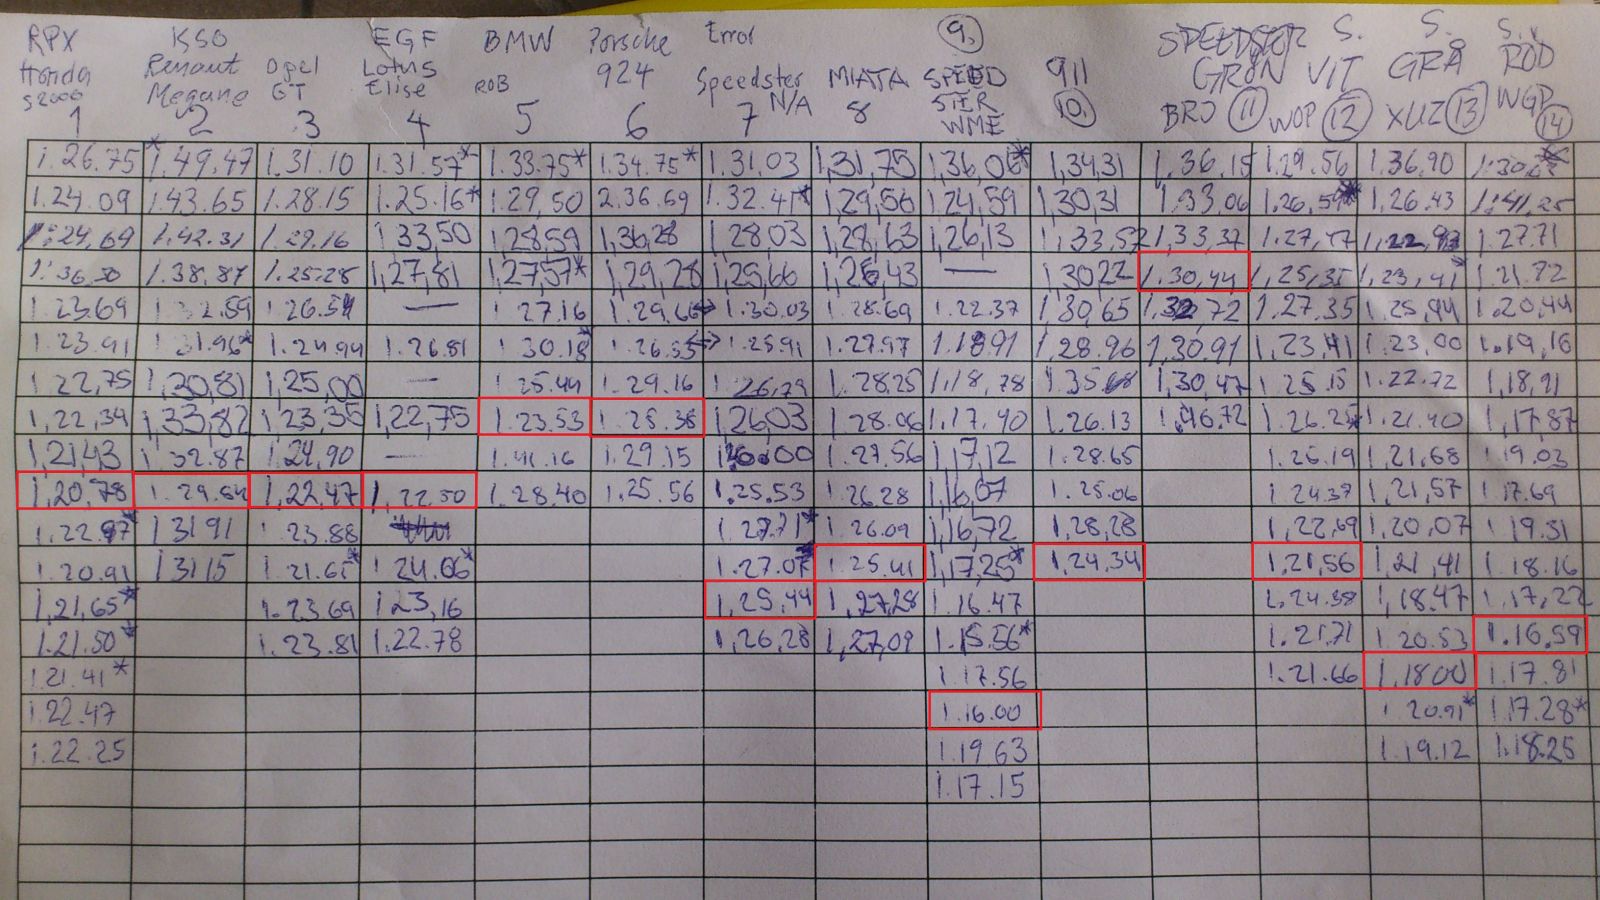 RPX KSO EGF BMW Porsche Error 9. SPEEDSTER S. S. S.
Honda Renault Opel Lotus 924 Speedster MIATA SPEED 911 GRØN VIT GRÅ RÖD
S2000 Megane GT Elise ROB N/A STER 10. BRJ 11 WOP 12 XUZ 13 WGP 14
1 2 3 4 5 6 7 8 WME
1.26.75 * 1.49.47 1.31.10 1.31.57* 1.33.75* 1.34.75* 1.31.03 1,31,75 1,36,06* 1,34,31 1.36.15 1.29.56 1.36.90
1.24.09 1.43.65 1.28.15 1.25.16* 1.29,50 2.36.69 1.32.41* 1,29,56 1,24,59 1,30,31 1,33,06 1.26.43 1:41,25
1:24,69 1.42.31 1.29.16 1,33,50 1,28,59 1,36,28 1,28,03 1,28,63 1,26,13 1,33,57 1,33,37 1.27,47 1.27.71
1:36,50 1.38,87 1.25.28 1,27,81 1,27,57* 1,29,28 1,25,66 1,26,43 — 1,30,22 1,30,44 1,25,35 1,23,41* 1.21.72
1.23.69 1.26.54 — 1.27.16 1.30.03 1.28.69 1.22.37 1,30,65 1,27,35 1.25,44 1.20,44
1.23.91 1.31.96* 1.24.94 1.26.81 1.30.18* 1.25.91 1.27.97 1,28,96 1,30,91 1,23,41 1.23,00 1.19,16
1.22,75 1,30,81 1,25,00 — 1.25.44 1.29.16 1.26,79 1.28.25 1,18,78 1,30,47 1.25.15 1.22.72 1,18,91
1,22,34 1,33,87 1,23,35 1,22,75 1.23.53 1.25.38 1,26,03 1.28.06 1,17,40 1.26.13 1,46,72 1.26.25* 1.21.40 1.17,87
1,21,43 1.32.87 1,24,90 — 1.41.16 1.29.15 1.27.56 1,17,12 1.28.65 1.26.19 1,21,68 1.19.03
1,20,78 1.29.84 1,22,47 1,22.50 1.28.40 1.25.56 1.25.53 1.26.28 1,16,07 1.25.06 1.24.37 1,21,57 1.17.69
1.22.97* 1.31.91 1.23.88 1.27.71* 1.26.09 1,16,72 1,28,28 1,22,69 1,20,07 1.19.31
1.20.91 1.31.15 1.21.65* 1.24.06* 1.27.07* 1.25.41 1,17,25* 1,24,34 1,21,56 1,21,41 1.18.16
1,21,65* 1.23.69 1.23,16 1,25,44 1,27,28 1.16.47 1.24.38 1,18,47 1.17,22
1.21.50* 1.23.81 1.22.78 1,26,28 1,27,09 1.15.56* 1.21.71 1.20.53 1.16.59
1.21.41* 1.17.56 1.21.66 1,18,00 1.17.81
1.22.47 1.16.00 1.20.91* 1.17.28*
1.22.25 1.19.63 1.19.12 1.18.25
1.17.15